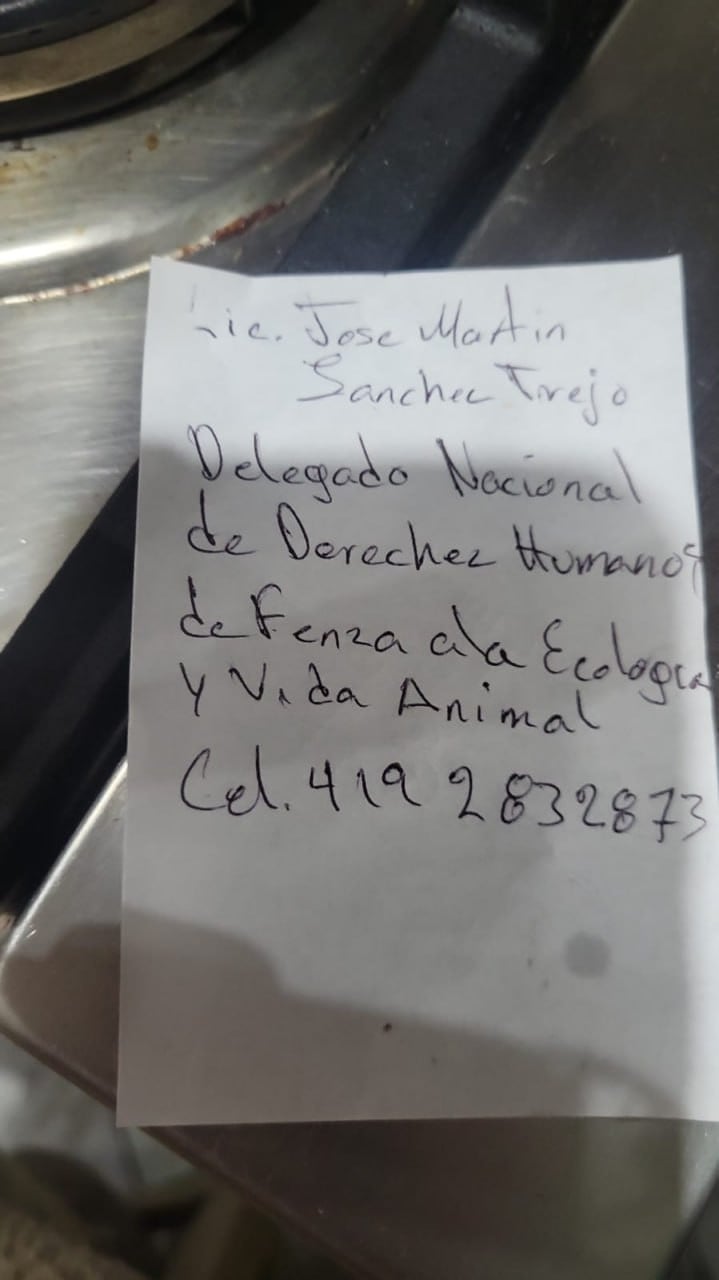 Lic. Jose Martin
Sanchez Trejo
Delegado Nacional
de Derechez Humanos
defenza ala Ecologia
y Vida Animal
Cel. 419 2832873